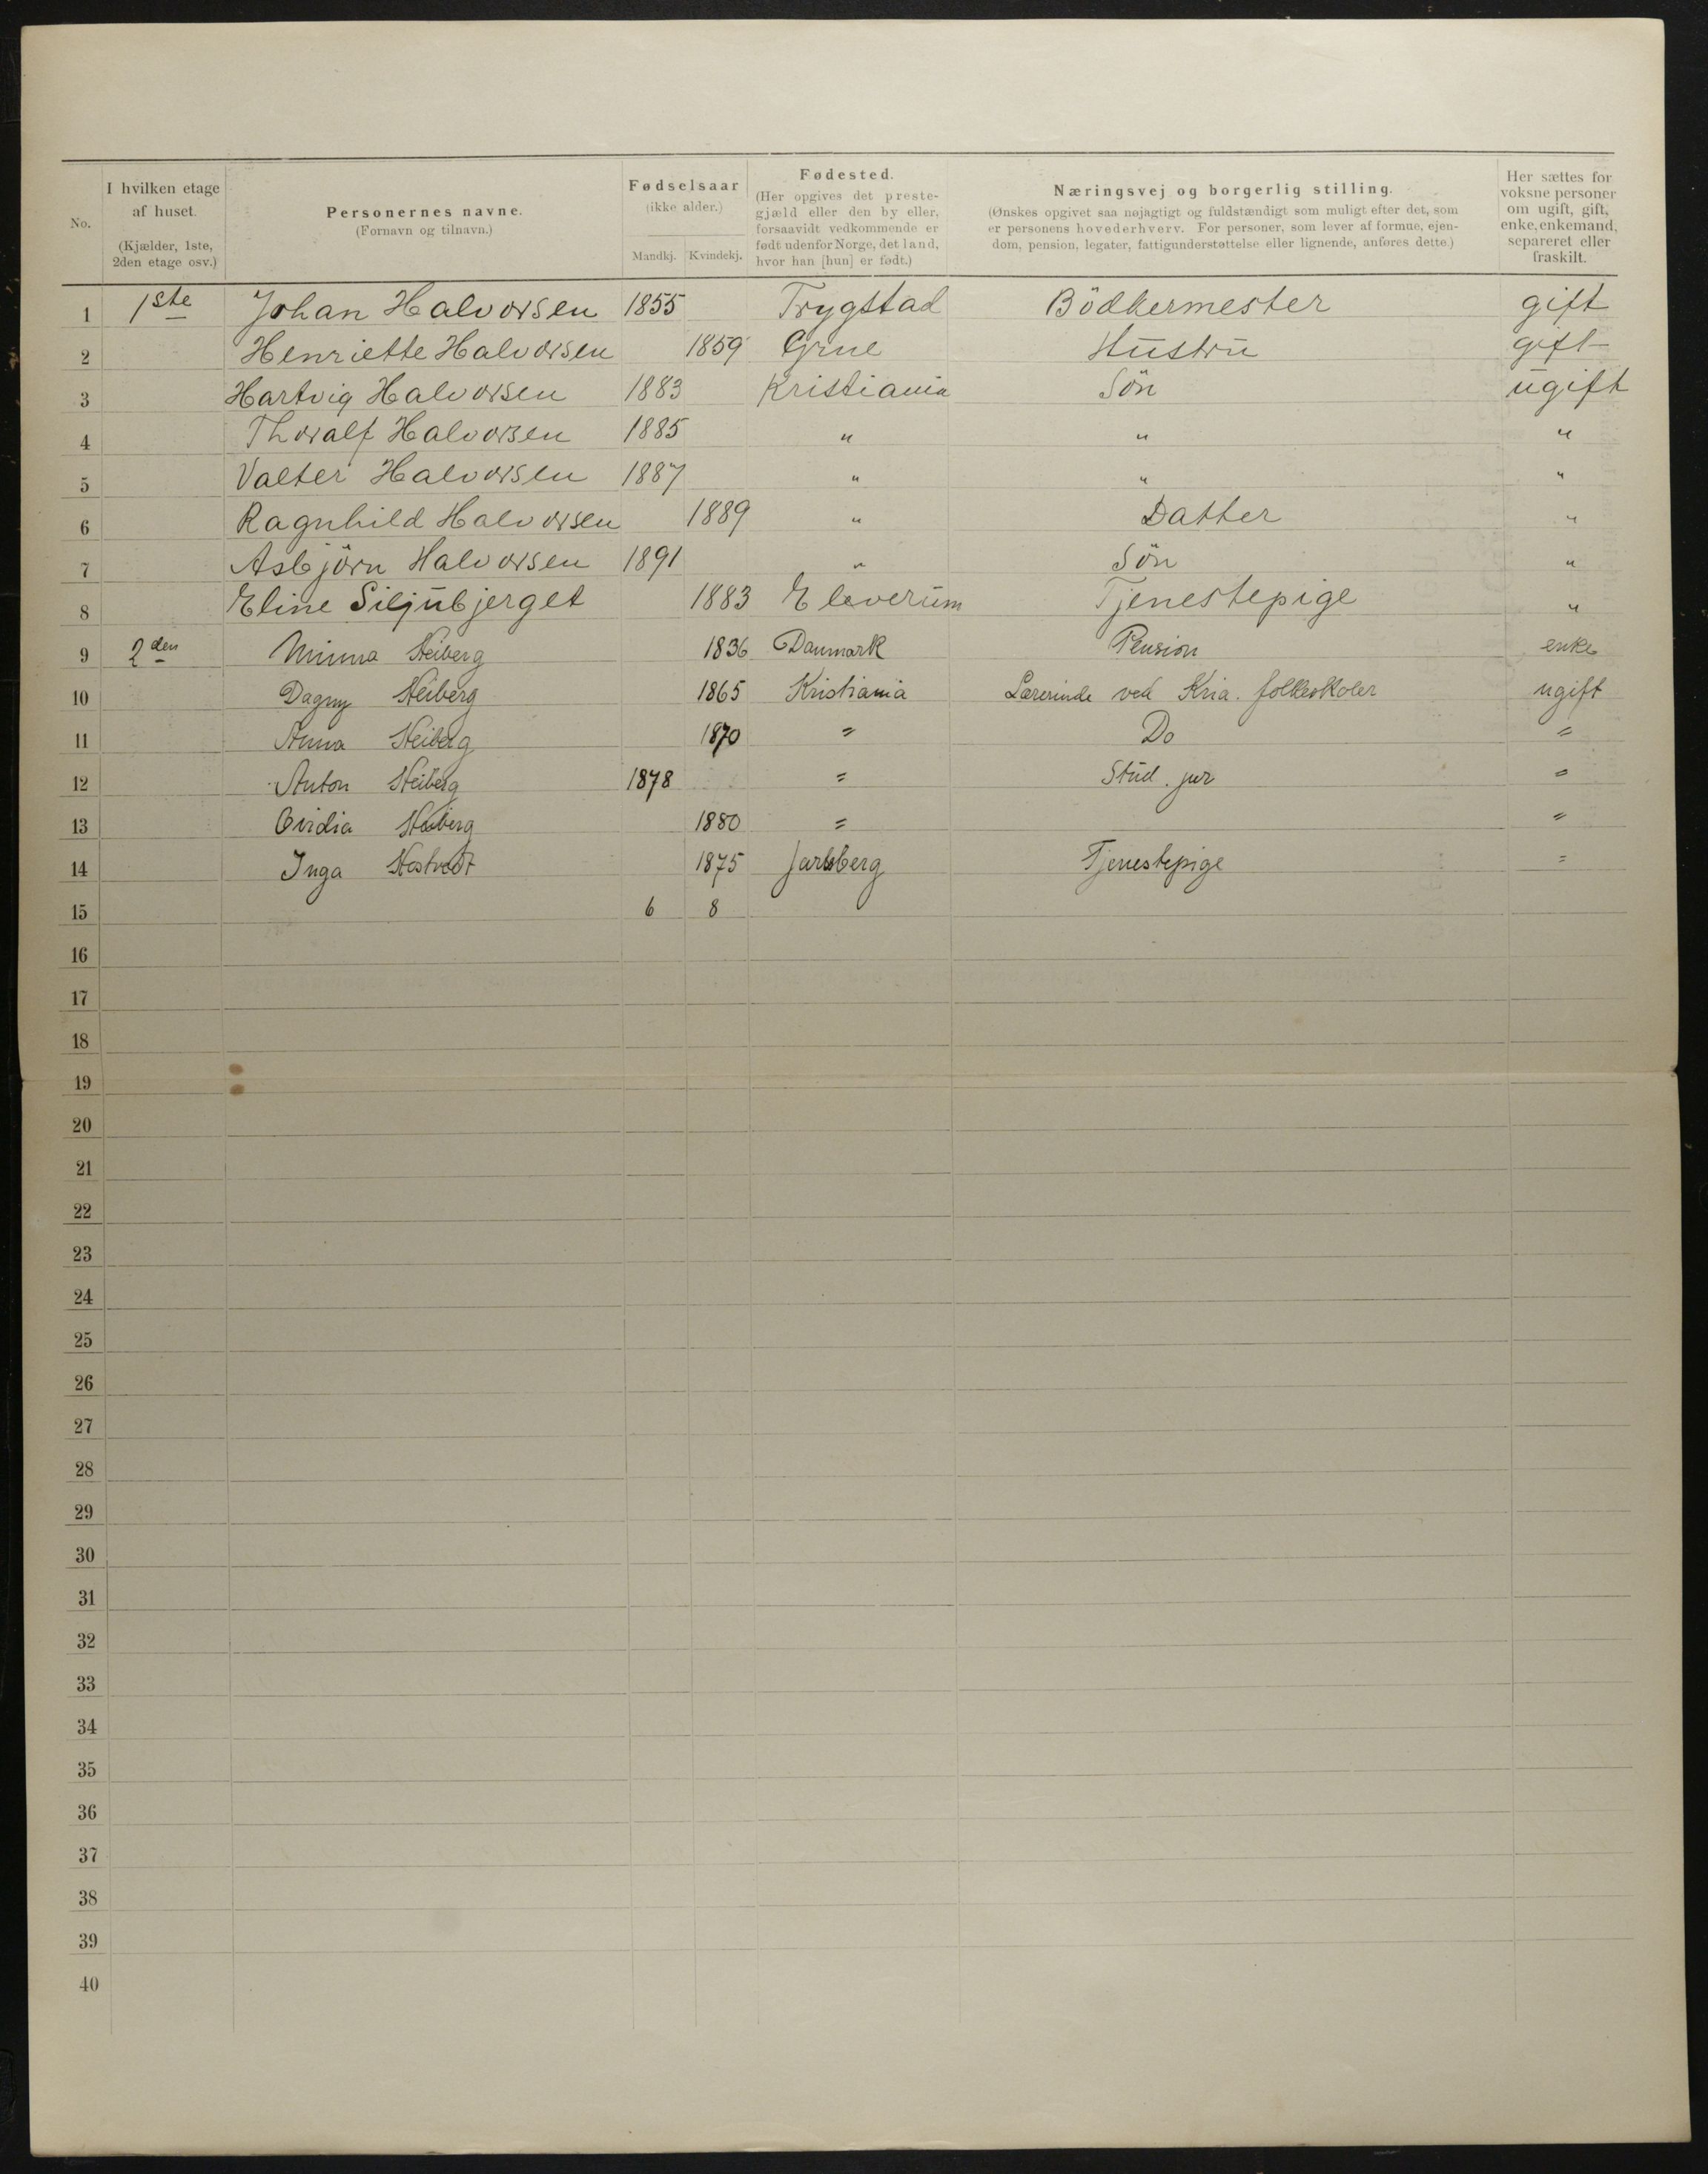 No. I hvilken etage af huset. (Kjælder, 1ste, 2den etage osv.) Personernes navne. (Fornavn og tilnavn.) Fødselsaar (ikke alder.) Mandkj. Kvindekj. Fødested. (Her opgives det prestegjæld eller den by eller, forsaavidt vedkommende er født udenfor Norge, det land, hvor han [hun] er født.) Næringsvej og borgerlig stilling. (Ønskes opgivet saa nøjagtigt og fuldstændigt som muligt efter det, som er personens hovederhverv. For personer, som lever af formue, ejendom, pension, legater, fattigunderstøttelse eller lignende, anføres dette.) Her sættes for voksne personer om ugift, gift, enke, enkemand, separeret eller fraskilt.
1 1ste Johan Halvorsen 1855 Trygstad Bödkermester gift
2 Henriette Halvorsen 1859 Grue Hustru gift
3 Hartvig Halvorsen 1883 Kristiania Sön ugift
4 Thoralf Halvorsen 1885 " " "
5 Valter Halvorsen 1887 " " "
6 Ragnhild Halvorsen 1889 " Datter "
7 Asbjörn Halvorsen 1891 " Sön "
8 Eline Siljubjerget 1883 Eleverum Tjenestepige "
9 2den Minna Heiberg 1836 Danmark Pension enke
10 Dagny Heiberg 1865 Kristiania Lærerinde ved Kria. folkeskoler ugift
11 Anna Heiberg 1870 " Do "
12 Anton Heiberg 1878 " Stud. jur "
13 Ovidia Heiberg 1880 " "
14 Inga Hestvedt 1875 Jarlsberg Tjenestepige "
15 6 8
16
17
18
19
20
21
22
23
24
25
26
27
28
29
30
31
32
33
34
35
36
37
38
39
40